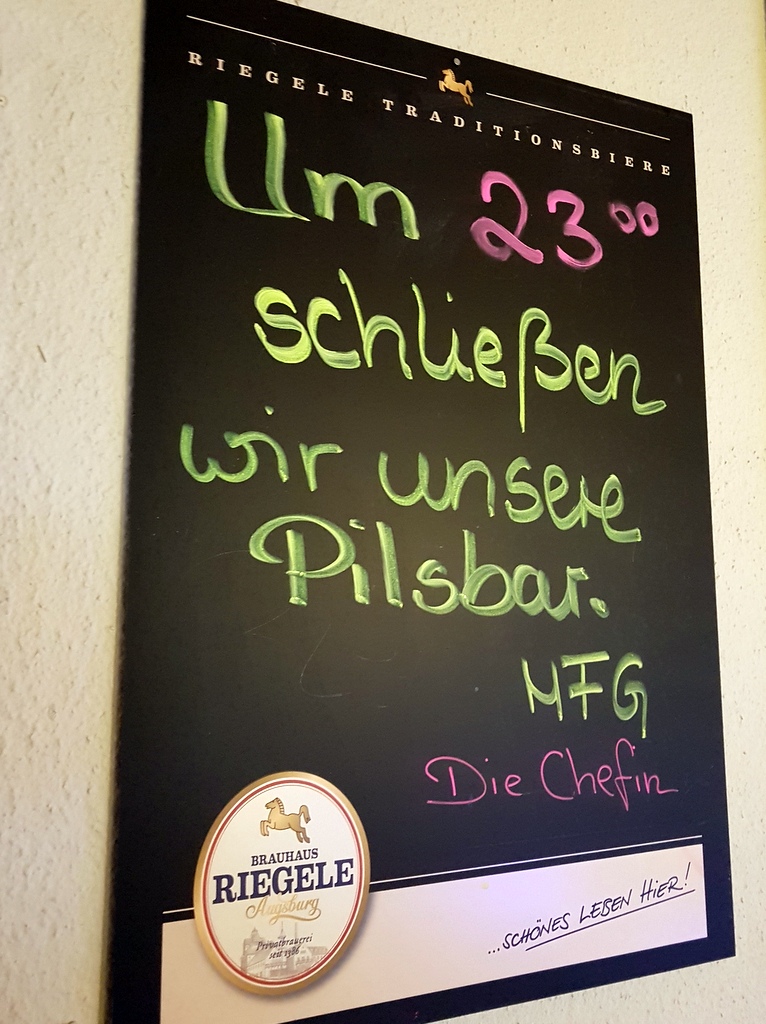 RIEGELE TRADITIONSBIERE
Um 23⁰⁰
schließen
wir unsere
Pilsbar.
MFG
Die Chefin
BRAUHAUS
RIEGELE
Augsburg
Privatbrauerei
seit 1386
...SCHÖNES LEBEN HiER!